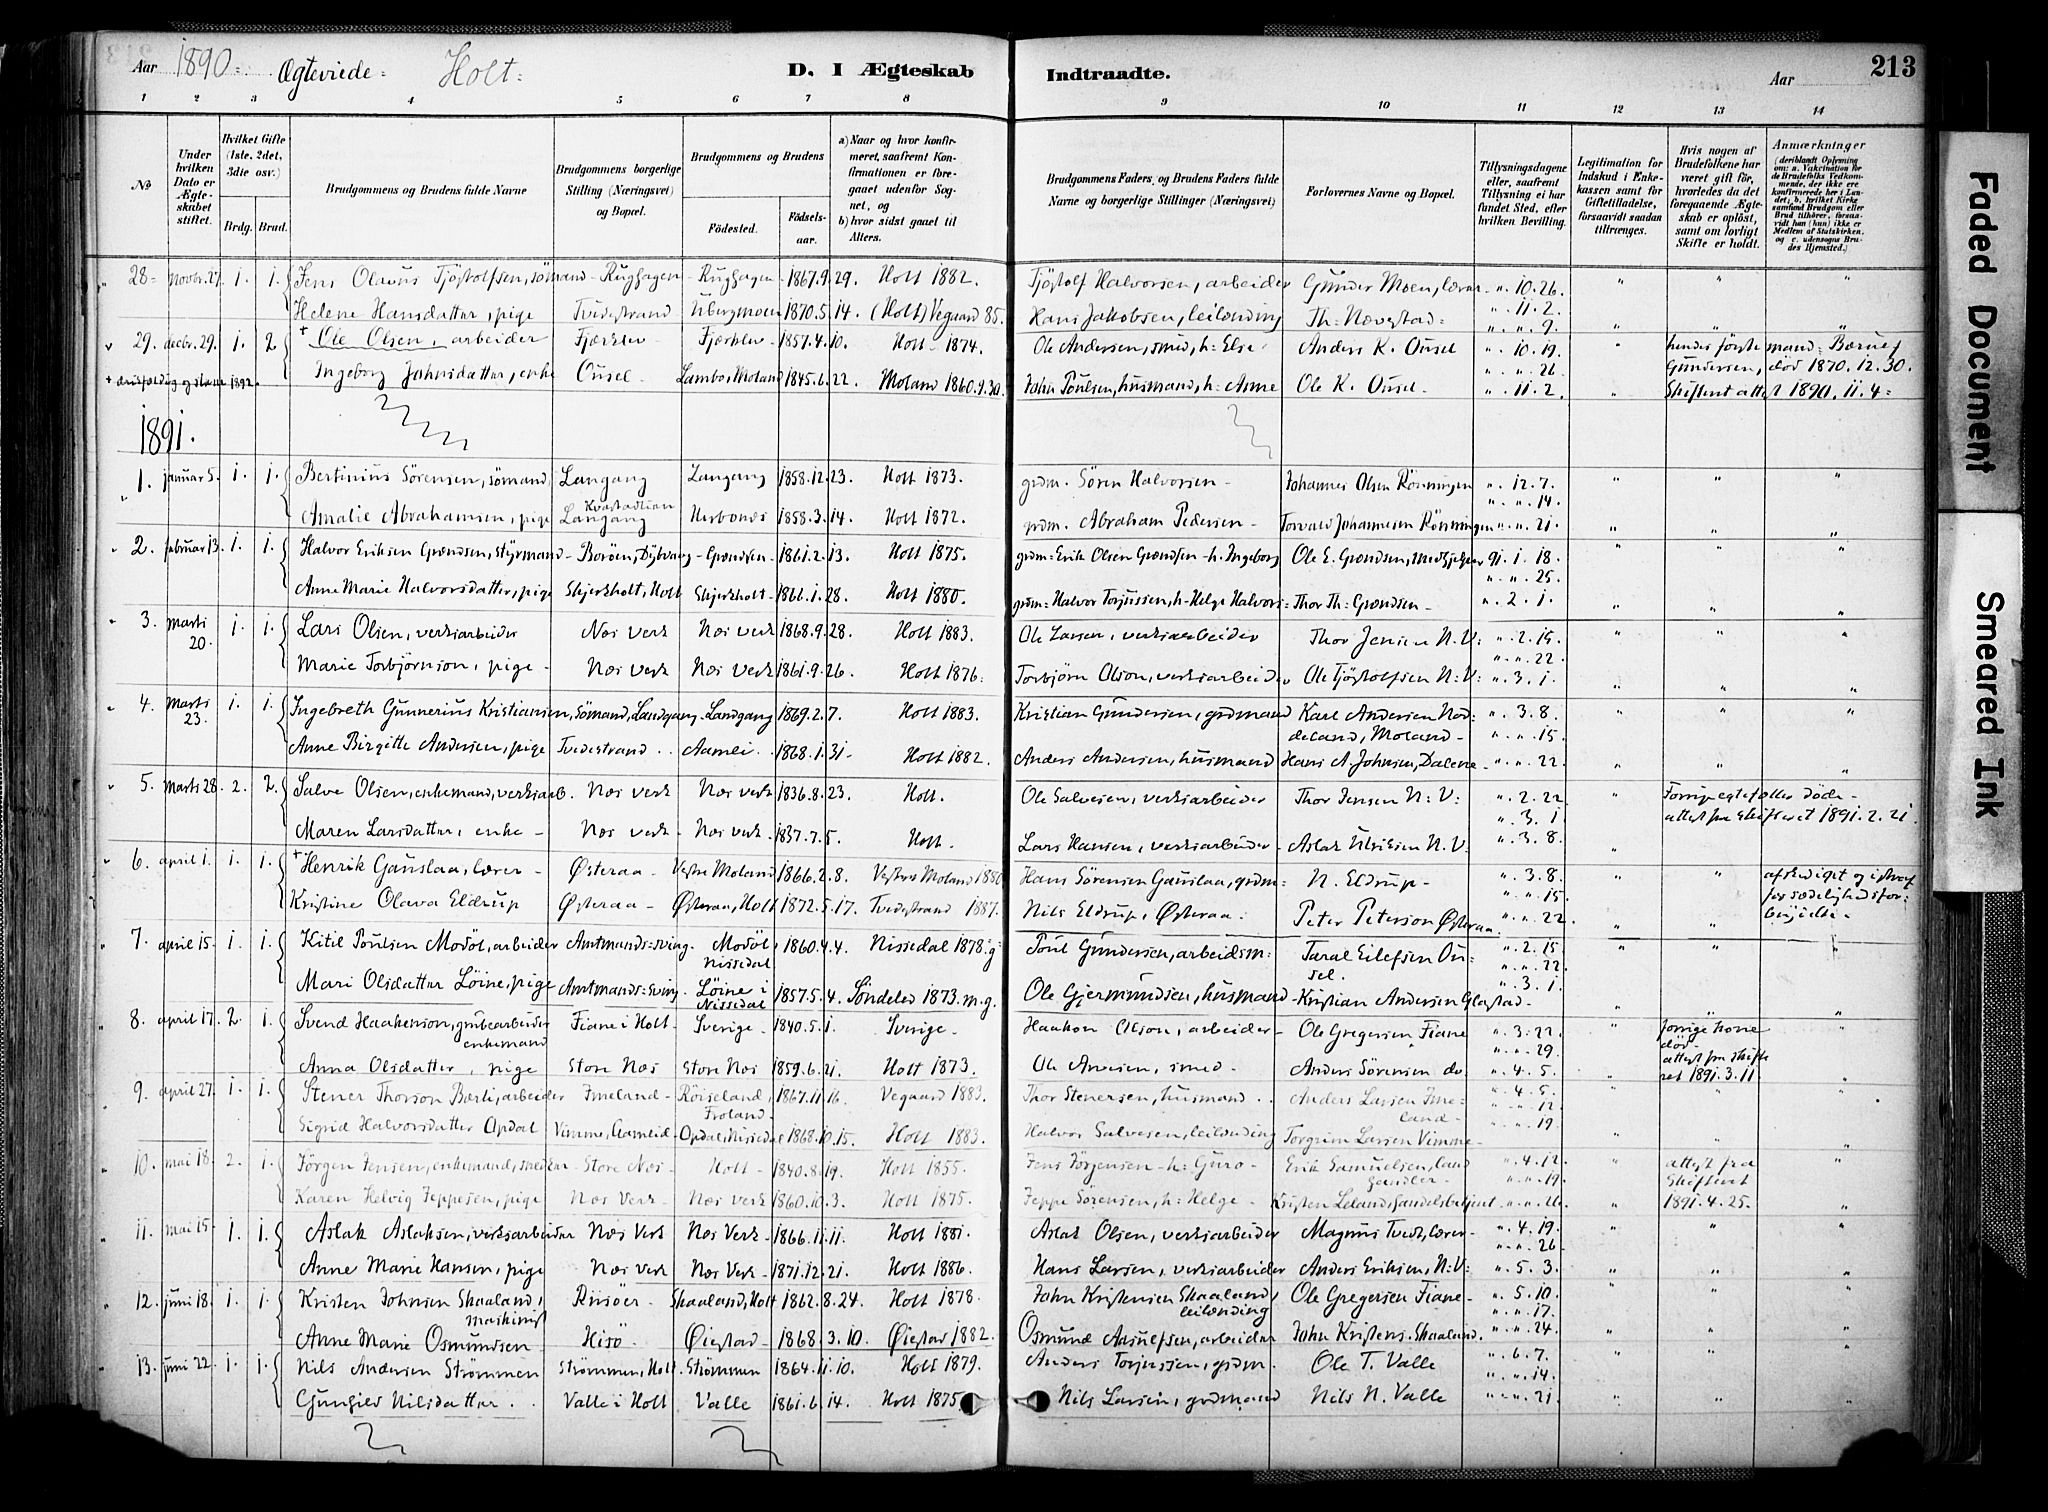 Aar 1890. Ægteviede Holt: D. I Ægteskab Indtraadte. Aar 213
1 2 3 4 5 6 7 8 9 10 11 12 13 14
No
Under hvilken Dato er Ægteskabet stiftet.
Hvilket Gifte (1ste, 2det, 3die osv.)
Brdg. Brud.
Brudgommens og Brudens fulde Navne
Brudgommens borgerlige Stilling (Næringsvei) og Bopæl.
Brudgommens og Brudens
Fødested. Fødselsaar.
a) Naar og hvor konfirmeret, saafremt Konfirmationen er foregaaet udenfor Sognet, og
b) hvor sidst gaaet til Alters.
Brudgommens Faders og Brudens Faders fulde Navne og borgerlige Stillinger (Næringsvei)
Forlovernes Navne og Bopæl.
Tillysningsdagene eller, saafremt Tillysning ei har fundet Sted, efter hvilken Bevilling.
Legitimation for Indskud i Enkekassen samt for Giftetilladelse, forsaavidt saadan tiltrænges.
Hvis nogen af Brudefolkene har været gift før, hvorledes da det foregaaende Ægteskab er opløst, samt om lovligt Skifte er holdt.
Anmærkninger (deriblandt Oplysning om: a. Vakcination for de Brudefolks Vedkommende, der ikke ere konfirmerede her i Landet; b. hvilket Kirkesamfund Brudgom eller Brud tilhører, forsaavidt han (hun) ikke er Medlem af Statskirken, og c. udensogns Brudes Hjemsted.)
28 Novbr. 27. 1. 1. Jens Olavus Tjöstolfsen, sömand - Rughagen - Rughagen - 1867.9.29. Holt 1882. Tjöstolf Halvorsen, arbeider Gunder Moen, lærer ". 10. 26.
Helene Hansdatter, pige Tvedestrand 1870.5.14. (Holt) Vegaard 85. Hans Jakobsen, leilænding Th: Nævestad ". 11. 2. ". ". 9.
29. decbr. 29. 1. 2 † Ole Olsen, arbeider Fjærklev - Fjærklev - 1857.4.10. Holt - 1874. Ole Andersen, smed, h: Else Anders K. Ousel ". 10. 19. hendes förste mand: Bærnt
Ingeborg Johnsdatter, enke Ousel - Lambo, Moland 1845.6.22. Moland 1860.9.30. John Poulsen, husmand, h: Anne Ole K. Ousel - ". ". 26. ". 11. 2. Gundersen, död 1870. 12. 30. Skifteret attest 1890. 11. 4.
1891.
1. januar 5. 1. 1. Bertinius Sörensen, sömand Langang Langang 1858.12.23. Holt 1873. grdm. Sören Halvorsen - Johannes Olsen Rönningen ". 12. 7. ". ". 14.
Amalie Abrahamsen, pige Langang 1858.3.14. Holt 1872. grdm. Abraham Pedersen - Torvald Johannesen Rönningen ". ". 21.
2. februar 13. 1. 1. Halvor Eriksen Grændsen, styrmand - Boröen, Dybvaag - Grændsen - 1861.2.13. Holt 1875. grdm: Erik Olsen Grændsen - h. Ingeborg Ole E. Grændsen 91. 1. 18. ". ". 25.
Anne Marie Halvorsdatter, pige Skjerkholt, Holt Skjerkholt - 1866.1.28. Holt 1880. grdm: Halvor Torjussen, h - Helge Halvors: Thor Th: Grændsen - ". 2. 1.
3. Marts 20. 1. 1. Lars Olsen, verksarbeider Næs verk Næs verk 1868.9.28. Holt 1883. Ole Larsen, verksarbeider Thor Jensen N. V: ". 2. 15. ". ". 22.
Marie Torbjörnson, pige - Næs verk Næs verk 1861.9.26. Holt 1876. Torbjörn Olson, verksarbeider Ole Tjöstolfsen N: V: ". 3. 1.
4. Marts 23. 1. 1. Ingebreth Gunnerius Kristiansen, Sömand, Landgang - Landgang 1869.2.7. Holt 1883. Kristian Gundersen, grdmand Karl Andersen Nodeland, Moland - ". 3. 8. ". ". 15.
Anne Birgitte Andersen, pige Tvedestrand . Aamli . 1868.1.31 - Holt 1882. Anders Andersen, husmand Hans A. Johnsen, Dalene - ". ". 22.
5. Marts 28. 2. 2. Salve Olsen, enkemand, verksarb. Næs verk Næs verk 1836.8.23. Holt. Ole Salvesen, verksarbeider Thor Jensen N: V: ". 2. 22. ". 3. 1. Forrige egtefæller döde - attest fra skifteret 1891. 2. 21.
Maren Larsdatter, enke - Næs verk - Næs verk - 1837.7.5. Holt. Lars Hansen, verksarbeider - Aslak Ulriksen N. V: ". 3. 8.
6. april 1. 1. 1. † Henrik Gauslaa, lærer - Østeraa - Vestre Moland 1866.2.8. Vestre Moland 1880 Hans Sörensen Gauslaa, grdm - N. Eldrup - ". 3. 8. ". ". 15.
Kristine Olava Eldrup Østeraa - Østeraa, Holt 1872.5.17. Tvedestrand 1887. Nils Eldrup, Østeraa: Peter Peterson Østeraa. ". ". 22.
7. april 15. 1. 1. Kitil Poulsen Modöl, arbeider Amtmands:sving - Modöl, Nissedal 1860.4.4. Nissedal 1878. Poul Gundersen, arbeidsm: Taral Eilefsen Ousel. ". 2. 15. ". ". 22.
Mari Olsdatter Löine, pige Amtmands:sving - Löine i Nissedal 1857.5.4. Söndeled 1873. m. g. Ole Gjermundsen, husmand - Kristian Andersen Glastad - ". 3. 1.
8. april 17. 2. 1. Svend Haakenson, grubearbeider enkemand Fiane i Holt - Sverige - 1840.5.1. Sverige - Haakon Olson, arbeider - Ole Gregersen Fiane ". 3. 22. ". ". 29. forrige kone död - attest fra skifteret 1891. 3. 11.
Anna Olsdatter, pige Store Næs Store Næs 1859.6.21. Holt 1873. Ole Anesen, smed. - Anders Sörensen do ". 4. 5.
9. april 27. 1. 1. Stener Thorson Bærli, arbeider Imeland - Röiseland, Froland - 1867.11.16. Vegaard 1883. Thor Stenersen, husmand Anders Larsen Imeland - ". 4. 5. ". ". 12.
Sigrid Halvorsdatter Opdal Vimme, Gamleid - Opdal, Nissedal 1868.10.15. Holt 1883. Halvor Salvesen, leilænding Torgrim Larsen Vimme - ". ". 19.
10. mai 18. 2. 1. Jörgen Jensen, enkemand, smed - Store Næs - Holt - 1840.8.19. Holt 1855. Jens Jörgensen - h: Guro - Erik Samuelsen, landhandler - ". 4. 12. ". ". 19. attest fra Skifteret 1891. 4. 25.
Karen Helvig Jeppesen, pige Næs Verk - Næs verk 1860.10.3. Holt 1875. Jeppe Sörensen, h: Helge - Kristen Leland, handelsbetjent ". ". 26.
11. mai 15. 1. 1. Aslak Aslaksen, verksarbeider Næs Verk Næs Verk - 1866.11.11. Holt 1881. Aslak Olsen, verksarbeider Magnus Tvedt, lærer - ". 4. 19. ". ". 26.
Anne Marie Hansen, pige Næs verk Næs Verk - 1871.12.21. Holt 1886. Hans Larsen, verksarbeider Anders Eriksen, N: V: ". 5. 3.
12. juni 18. 1. 1. Kristen Johnsen Skaaland, maskinist Risöer - Skaaland, Holt 1862.8.24. Holt 1878. John Kristensen Skaaland, leilænding Ole Gregersen Fiane - ". 5. 10. ". ". 17.
Anne Marie Osmundsen Hisö - Øiestad - 1868.3.10. Øiestad 1882. Osmund Aasulfsen, arbeider John Kristens. Skaaland. ". ". 24.
13. juni 22. 1. 1. Nils Andersen Strömmen Strömmen, Holt . Strömmen 1864.11.10. Holt 1879. Anders Torjussen, grdm. Ole T. Valle ". 6. 7. ". ". 14.
Gunhild Nilsdatter . . Valle i Holt Valle 1861.6.14. Holt 1875 Nils Larsen, grdmand Nils N. Valle ". ". 21.
Faded Document
Smeared Ink